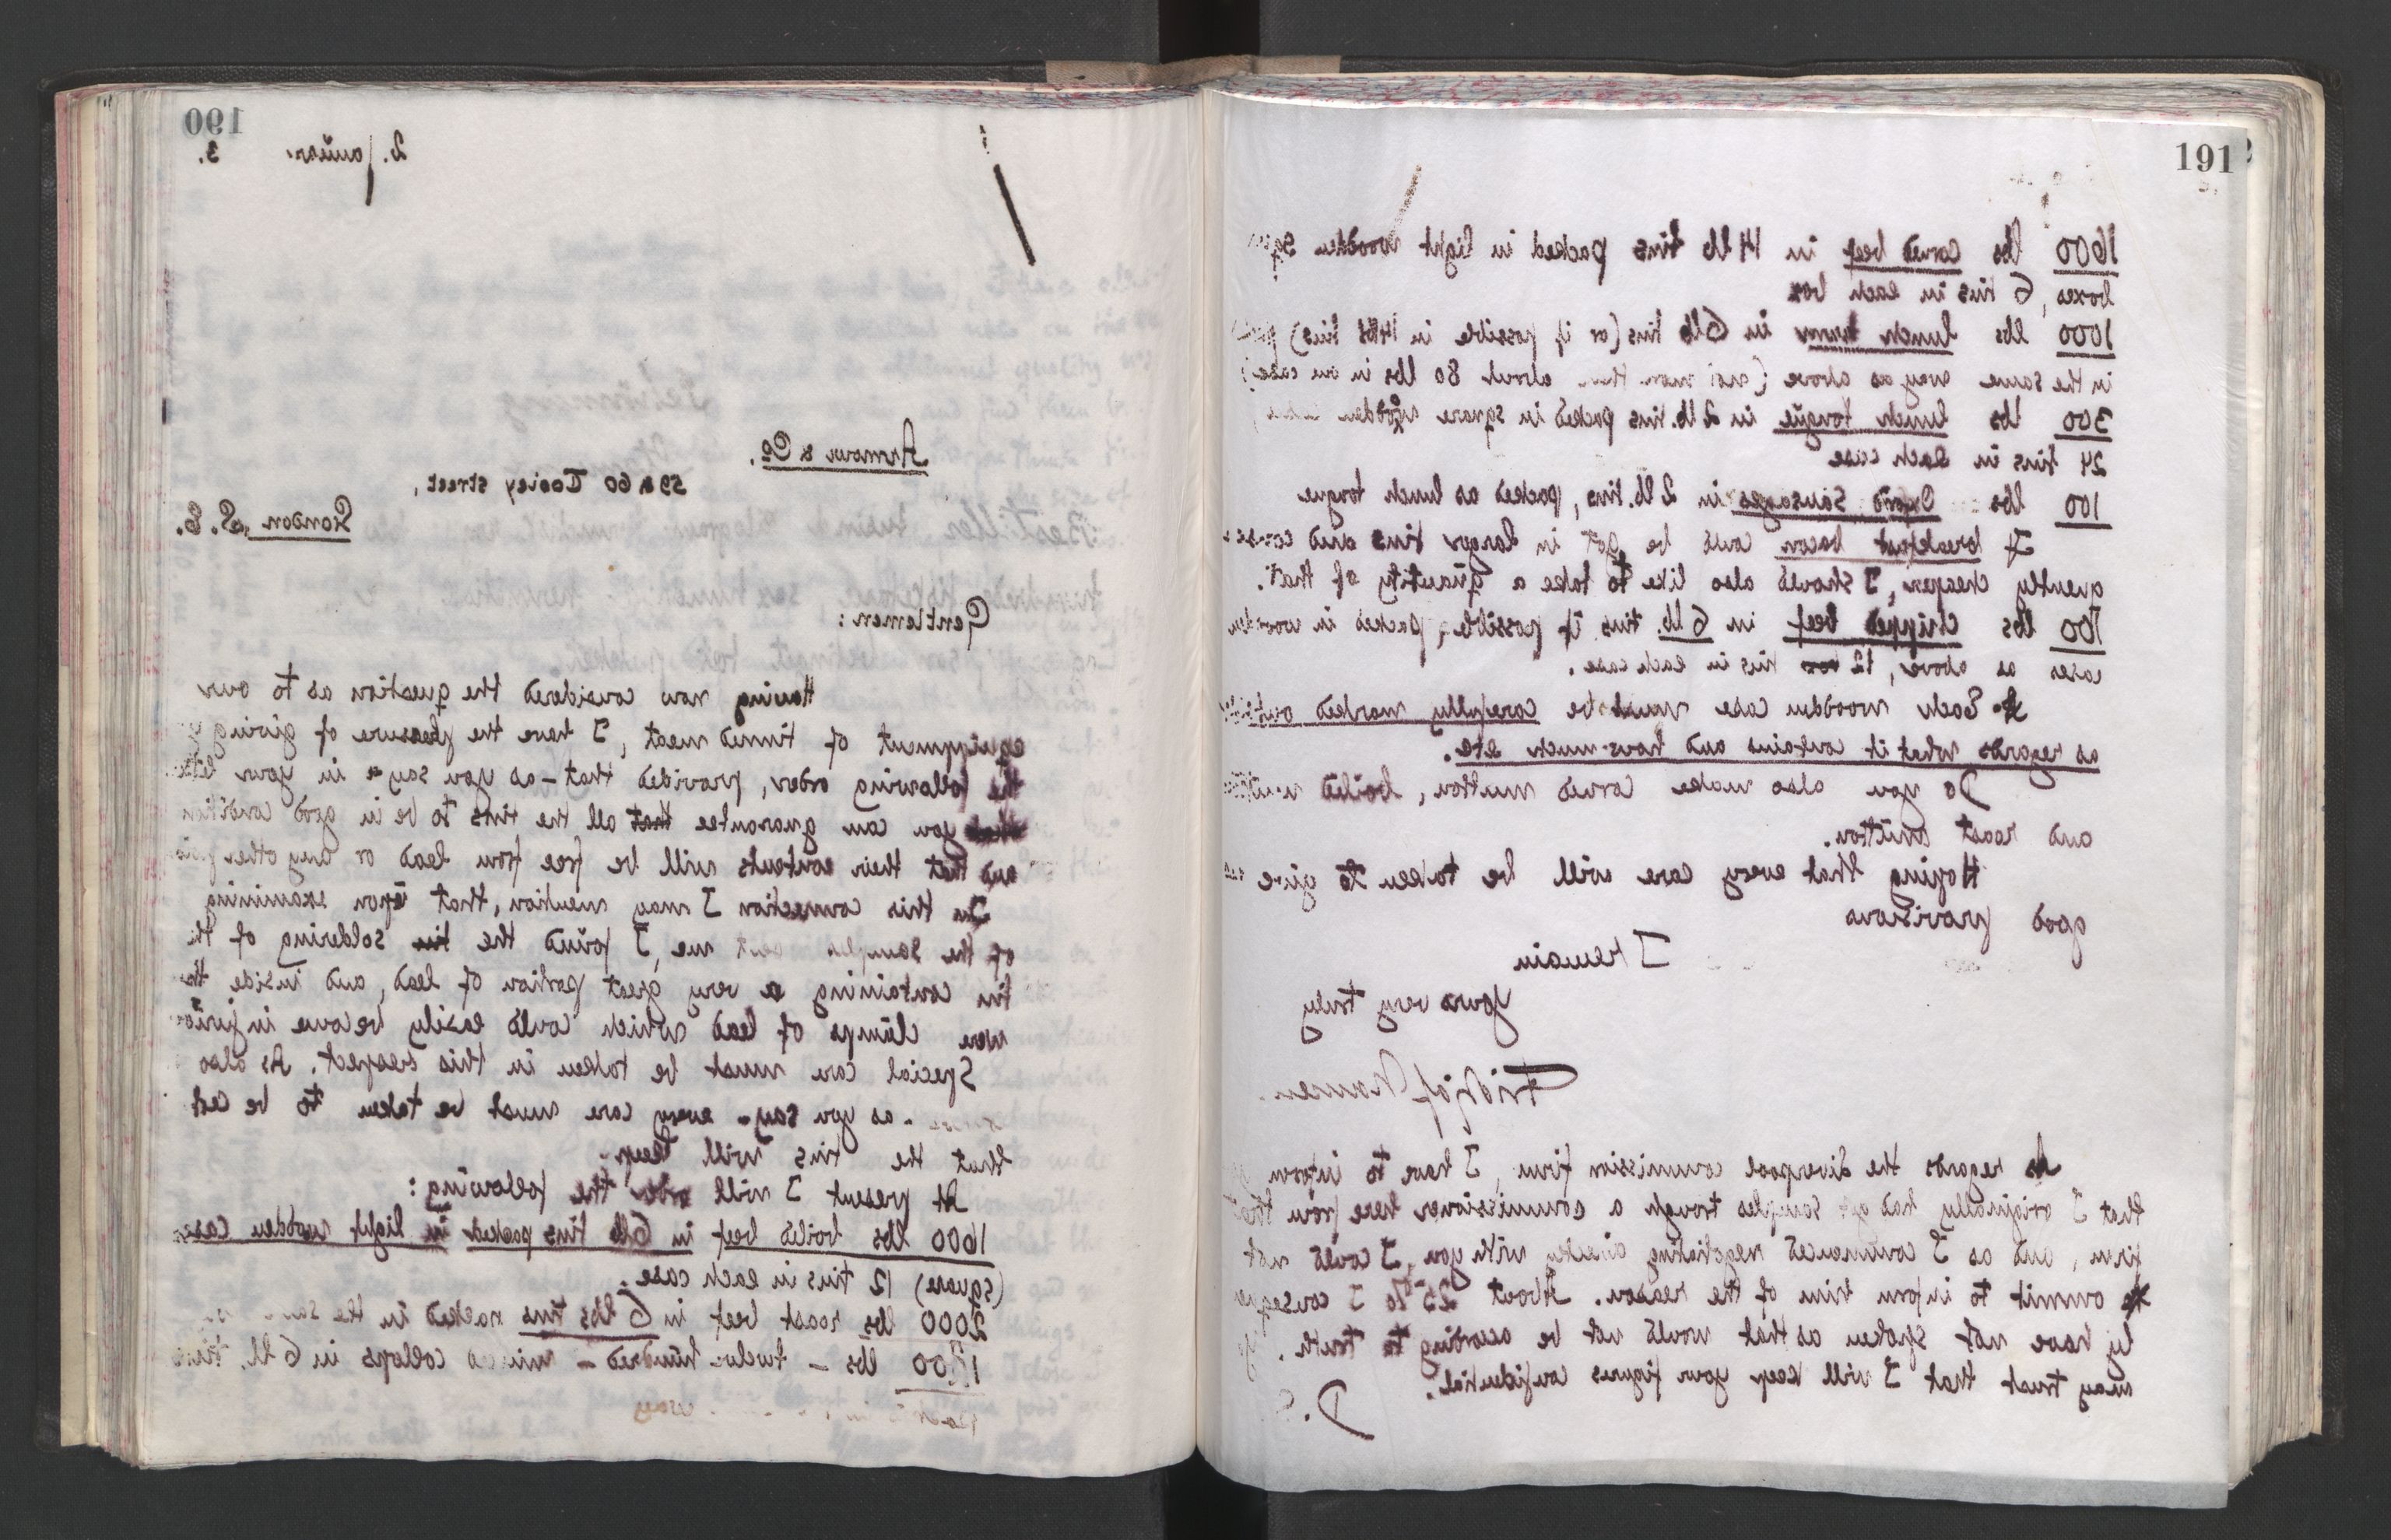 190
2. Januar 3.
Armour & Co.
59 & 60 Tooley street,
London, S. E.
Gentlemen:
Having now considered the question as to our
equippment of tinned meat, I have the pleasure of giving
the following order, provided that – as you say in your
you can guarantee that all the tins to be in good condition
and that their contents will be free from lead or any other
In this connection I may mention, that upon examining
of the samples sent me, I found the tin soldering of the
tin containing a very great portion of lead, and inside the
were clumps of lead which could easily become
Special care must be taken in this respect. As also
– as you say – every care must be taken to be
that the tins will keep.
At present I will order the following:
1600 lbs boiled beef in 6 lb tins packed in light wooden cases
(square) 12 tins in each case.
2000 lbs roast beef in 6 lbs tins packed in the
lbs – twelve hundred – minced collops in 6 lb. tins
way
191
1600 lbs corned beef in 14 lb tins packed in light wooden
boxes, 6 tins in each box
1000 lbs lunch in 6 lb tins (or if possible in 14 lbs tins)
in the same way as above (not more than about 80 lbs in one case)
300 lbs lunch tongue in 2 lb. tins packed in square wooden
24 tins in each case
100 lbs Oxford sausages in 2 lb. tins, packed as lunch tongue
If breakfast bacon could be got in larger tins and
quently cheaper, I should also like to take a quantity of that.
lbs chipped beef in 6 lb. tins if possible, packed in wooden
cases as above, 12 tins in each case.
Each wooden case must be carefully marked
as regards what it contains and how much etc.
Do you also make corned mutton, boiled mutton
and roast mutton.
Hoping that every care will be taken to give
good provisions
I remain
yours very truly
Fridtjof Nansen.
As regards the Liverpool commission firm, I have to inform
that I originally had got samples trough a commissioner here from
firm, and as I commenced negotiating directly with you, I could not
ommit to inform him of the reason. About 25% I
ly have not spoken as that would not be according to truth.
may trust that I will keep your figures confidential.
D. S.